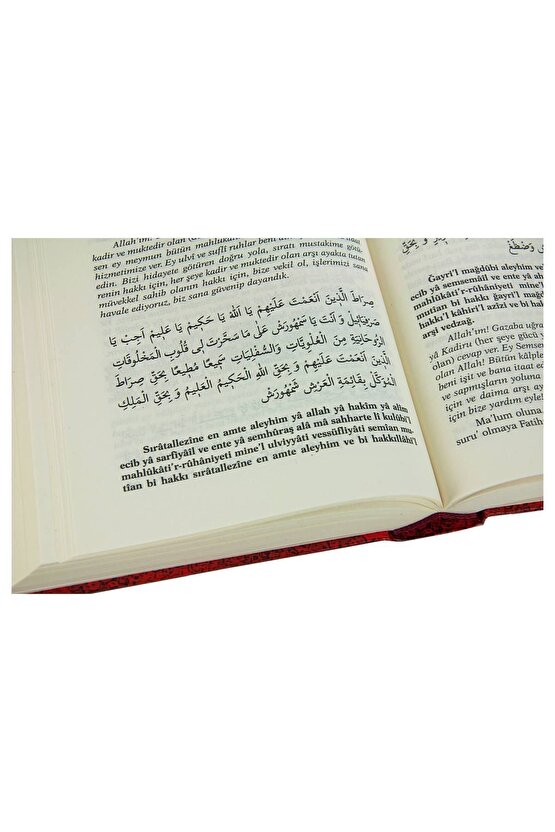 Allah'ım!
kadir ve muktedir olan (
sen ey meymun bütün mahlukâtı
hizmetimize ver. Ey ulvî ve suflî ruhlar beni
edin. Bizi hidayete götüren doğru yola, sıratı mustakime götü-
renin hakkı için, her şeye kadir ve muktedir olan arşı ayakta tutan
müvekkel sahib olanın hakkı için, bize vekil ol, işlerimizi sana
havale ediyoruz, biz sana güvenip dayandık.
صِرَاطَ الَّذِينَ اَنْعَمْتَ عَلَيْهِمْ يَا اَللّٰهُ يَا حَكِيمُ يَا عَلِيمُ اَجِبْ يَا
صَرْفَيَائِيلُ وَ اَنْتَ يَا سَمْهُورَشُ عَلٰى مَا سَخَّرْتَ لِى قُلُوبَ الْمَخْلُوقَاتِ
الرُّوحَانِيَّةِ مِنَ الْعُلْوِيَّاتِ وَالسُّفْلِيَّاتِ سَمِيعًا مُطِيعًا بِحَقِّ صِرَاطَ
الَّذِينَ اَنْعَمْتَ عَلَيْهِمْ وَ بِحَقِّ اللّٰهِ الْحَكِيمِ الْعَلِيمِ وَ بِحَقِّ الْمَلِكِ
الْمُوَكَّلِ بِقَائِمَةِ الْعَرْشِ
Sırâtallezîne en amte aleyhim yâ allah yâ hakîm yâ alîm
ecib yâ sarfiyâil ve ente yâ semhûraş alâ mâ sahharte lî kulûbi'l
mahlûkâti'r-rûhâniyeti mine'l ulviyyâti vessüfliyâti semîan mu-
tîan bi hakkı sırâtallezîne en amte aleyhim ve bi hakkıllâhi'l
Ğayri'l mağdûbi aleyhim
ecib yâ semsemâil ve ente yâ
mahlûkâti'r-rûhâniyeti mine'l
mutîan bi hakkı ğayri'l mağ
hakkı'l kâhiri'l azîzi ve bi hak
arşı vedzağ.
Allah'ım! Gazaba uğra
yâ Kadiru (her şeye gücü y
olan) cevap ver. Ey Semse
olan Allah! Bütün kâlple
beni işit ve bana itaat ed
ve sapmışların yoluna
ve daima arşı ay
için bize yardım eyle!
Ma'lum oluna
suru' olmaya Fatih